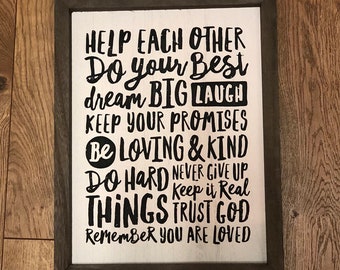 HELP EACH OTHER
Do your Best
dream BIG LAUGH
KEEP YOUR PROMISES
Be LOVING & KIND
DO HARD THINGS
NEVER GIVE UP
Keep it Real
TRUST GOD
Remember YOU ARE LOVED